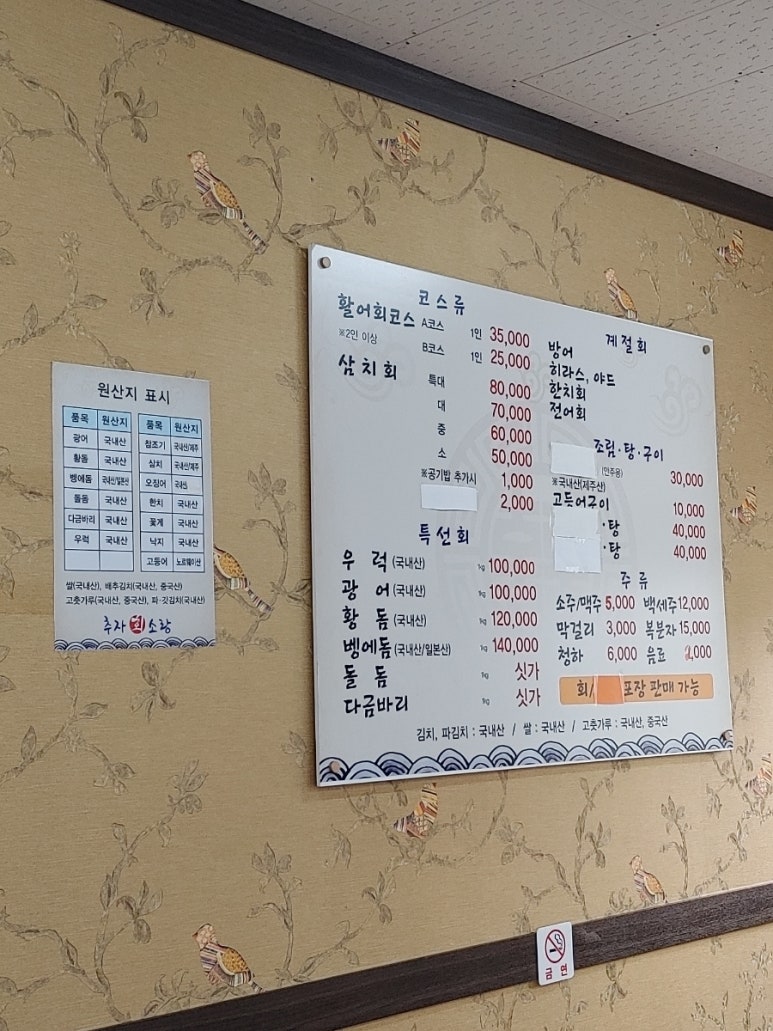 원산지 표시
품목 원산지 품목 원산지
광어 국내산 참조기 국내산/제주
활돔 국내산 삼치 국내산/제주
벵에돔 국내산/일본산 오징어 국내산
돌돔 국내산 한치 국내산
다금바리 국내산 꽃게 국내산
우럭 국내산 낙지 국내산
고등어 노르웨이산
쌀(국내산), 배추김치(국내산, 중국산)
고춧가루(국내산, 중국산), 파·갓김치(국내산)
추자 회 소랑
코스류
활어회코스 A코스 1인 35,000
※2인 이상 B코스 1인 25,000
삼치회 특대 80,000
대 70,000
중 60,000
소 50,000
※공기밥 추가시 1,000
2,000
특선회
우럭(국내산) 1kg 100,000
광어(국내산) 1kg 100,000
황돔(국내산) 1kg 120,000
벵에돔(국내산/일본산) 1kg 140,000
돌돔 1kg 싯가
다금바리 1kg 싯가
계절회
방어
히라스, 야드
한치회
전어회
조림·탕·구이
(안주용) 30,000
※국내산(제주산)
고등어구이 10,000
·탕 40,000
·탕 40,000
주류
소주/맥주 5,000 백세주 12,000
막걸리 3,000 복분자 15,000
청하 6,000 음료
회/ 포장 판매 가능
김치, 파김치 : 국내산 / 쌀 : 국내산 / 고춧가루 : 국내산, 중국산
금연